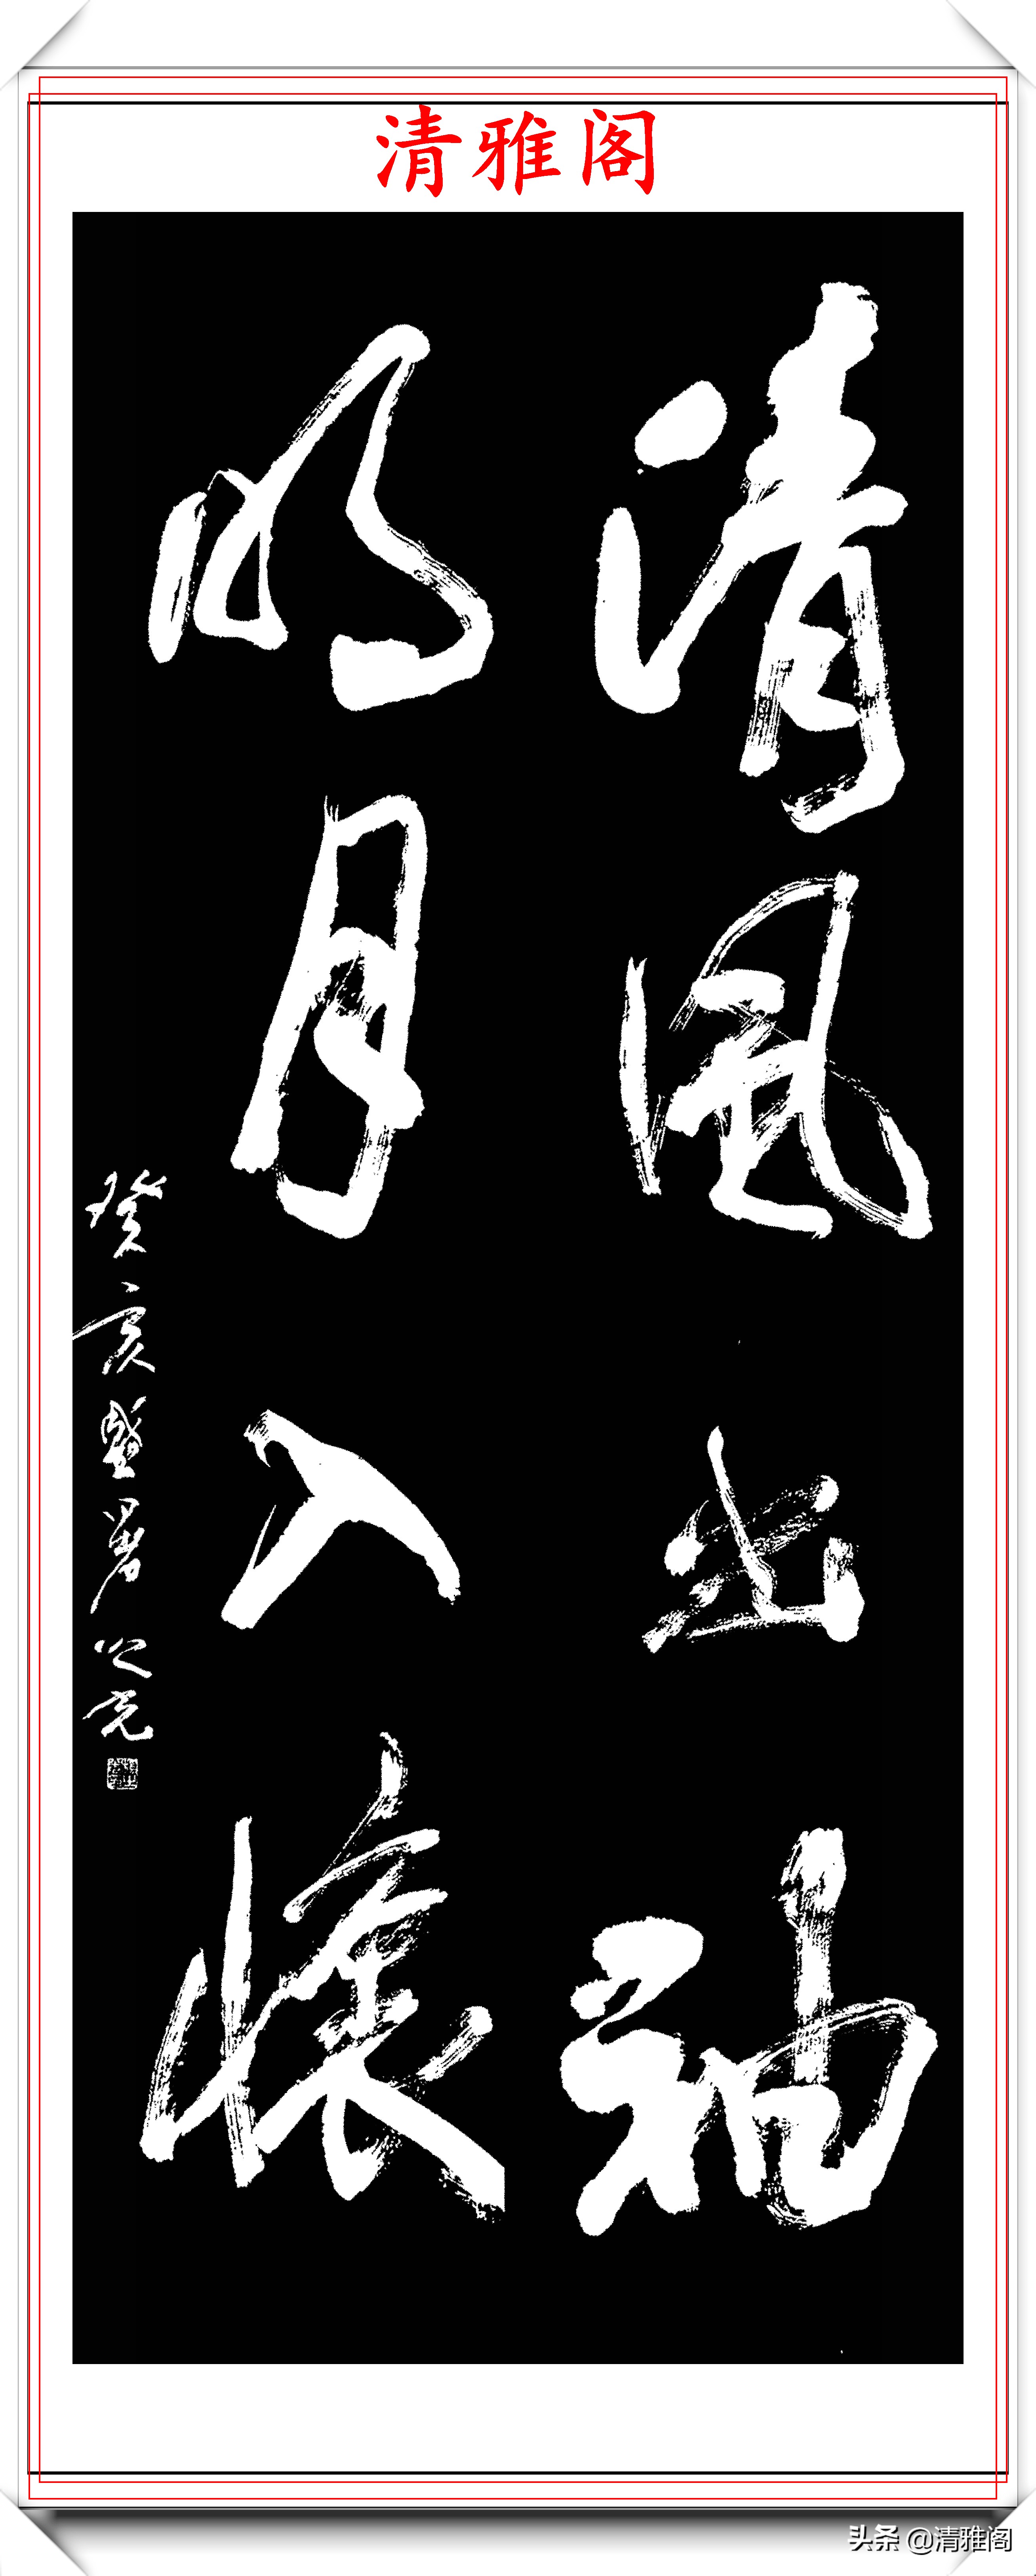 清雅阁
清风出袖
明月入怀
癸亥盛暑之光
头条 @清雅阁